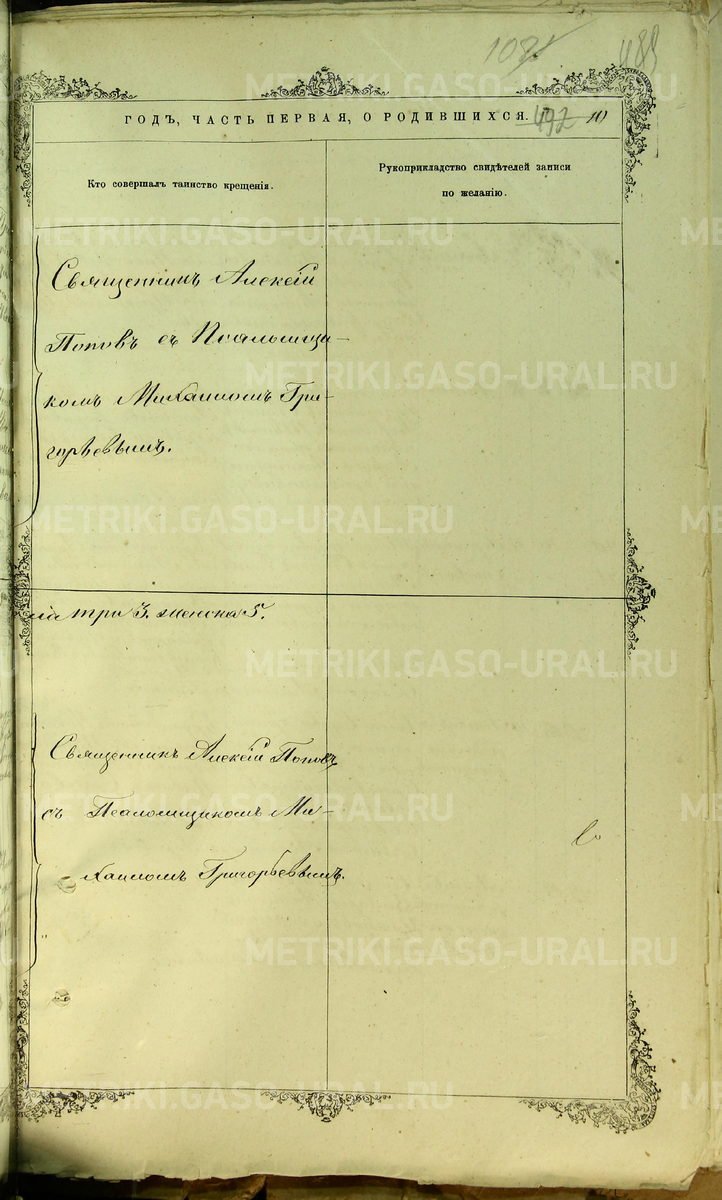 489
492
ГОДЪ, ЧАСТЬ ПЕРВАЯ, О РОДИВШИХСЯ.
Кто совершалъ таинство крещенія.
Рукоприкладство свидѣтелей записи
по желанію.
Священникъ Алексій
Поповъ съ Псаломщи-
комъ Михаиломъ Гри-
горьевымъ.
три 3. женска 5.
Священникъ Алексій Поповъ
съ Псаломщикомъ Ми-
хаиломъ Григорьевымъ.
METRIKI.GASO-URAL.RU